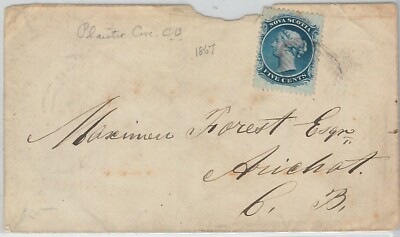 Plaister Cove. CB
1867
NOVA SCOTIA
FIVE CENTS
Maximen Forest Esqr
Arichat.
C. B.